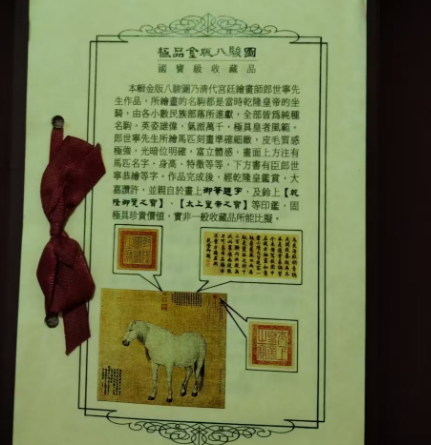 極品金版八駿圖
國寶級收藏品
本輯金版八駿圖乃清代宮廷繪畫師郎世寧先
生作品，所繪畫的名駒都是當時乾隆皇帝的坐
騎，由各小數民族部落所進獻，全部皆爲純種
名駒，英姿雄偉，氣派萬千，極具皇者風範。
郎世寧先生所繪馬匹刻畫準確細緻，皮毛質感
極強，光暗位明確，富立體感，畫面上方注有
馬匹名字，身高，特徵等等，下方書有臣郎世
寧恭繪等字。作品完成後，經乾隆皇鑑賞，大
嘉讚許，並親自於畫上御筆題字，及鈐上【乾
隆御覽之寶】，【太上皇帝之寶】等印鑑，固
極具珍貴價值，實非一般收藏品所能比擬。